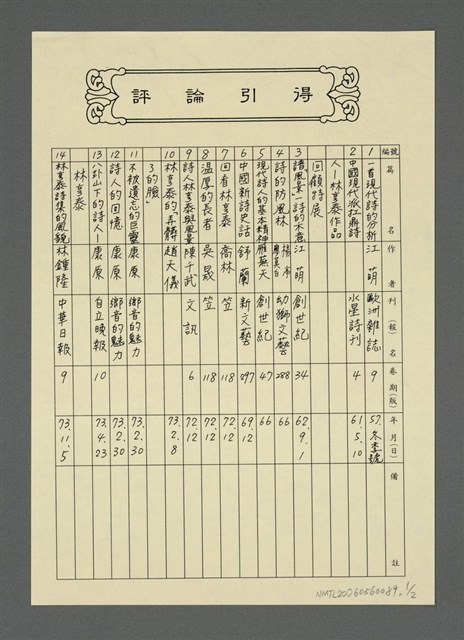 評論引得
編號 篇名 作者 刊(報)名 卷期(版) 年月(日) 備註
1 一首現代詩的分析 江萌 歐洲雜誌 9 57.冬季號
2 中國現代派扛鼎詩人—林亨泰作品回顧特展 水星詩刊 4 61.5.10
3 「風景」一詩的木煮 江萌 創世紀 34 62.9.1
4 詩的防風林 楊亭 幼獅文藝 288 66
5 現代詩人的基本精神 雁蕪天 創世紀 47 66
6 中國新詩史話 舒蘭 新文藝 897 69.12
7 回看林亨泰 喬林 笠 118 72.12
8 溫厚的長者 吳晟 笠 118 72.12
9 詩人林亨泰與風景 陳千武 文訊 6 72.12
10 林亨泰的「弄髒了的臉」 趙天儀 73.2.8
11 不被遺忘的巨靈 康原 鄉音的魅力 73.2.30
12 詩人的回憶 康原 鄉音的魅力 73.2.30
13 八卦山下的詩人—林亨泰 康原 自立晚報 10 73.4.23
14 林亨泰詩集的風貌 林鍾隆 中華日報 9 73.11.5
NMTL20060560089. 1/2